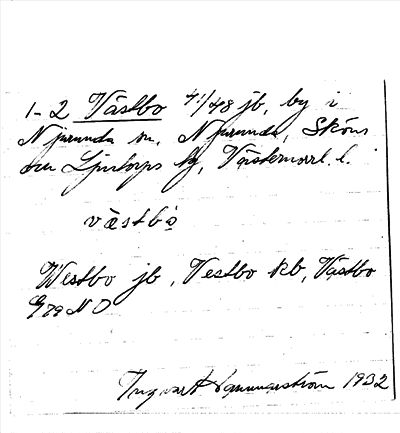 1-2 Västbo 41/48 jb, by i
Njurunda sn, Njurunda, Sköns
och Ljustorps tg, Västernorrl. l.
västbo
Westbo jb, Vestbo kb, Västbo
G79NO
Ingvar 1932